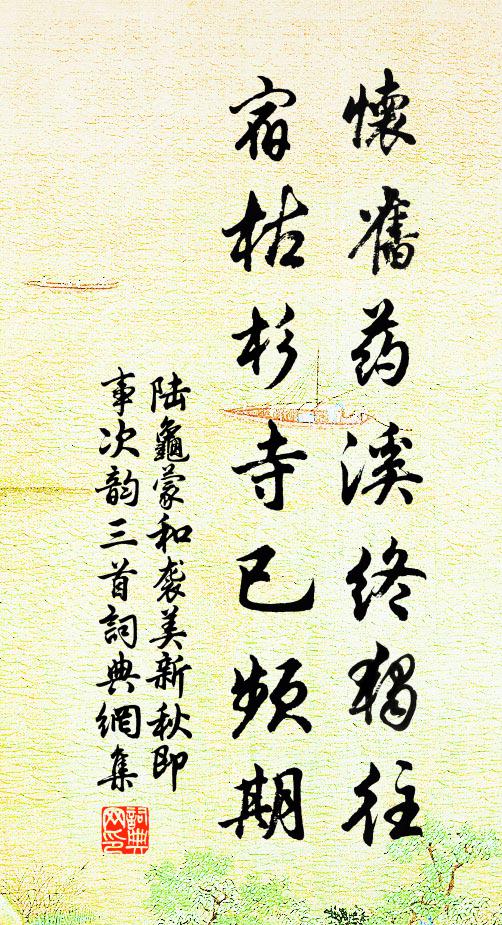 懷舊药溪终獨往
宿枯杉寺已頻期
陆龜蒙和袭美新秋即
事次韵三首詞典網集
詞典
网印